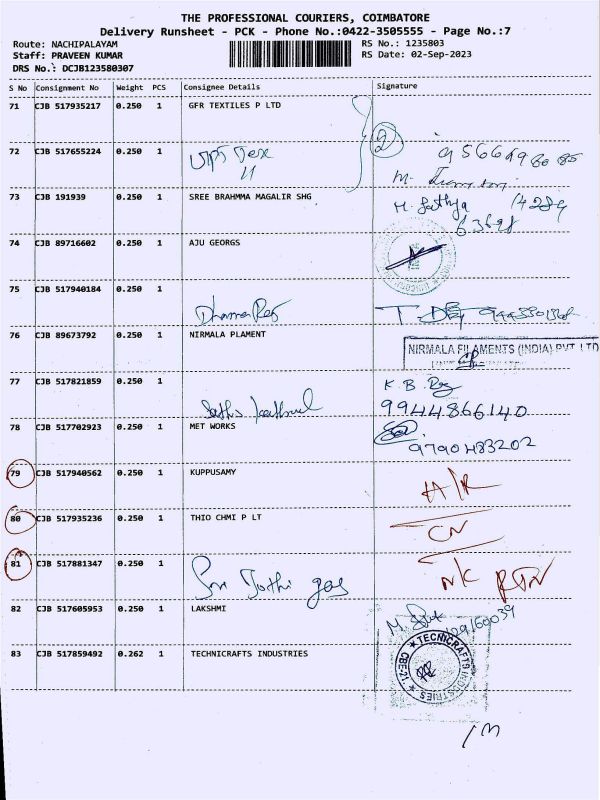 THE PROFESSIONAL COURIERS, COIMBATORE
Delivery Runsheet - PCK - Phone No.:0422-3505555 - Page No.:7
Route: NACHIPALAYAM RS No.: 1235803
Staff: PRAVEEN KUMAR RS Date: 02-Sep-2023
DRS No.: DCJB123580307
S No Consignment No Weight PCS Consignee Details Signature
71 CJB 517935217 0.250 1 GFR TEXTILES P LTD
2
72 CJB 517655224 0.250 1
73 CJB 191939 0.250 1 SREE BRAHMMA MAGALIR SHG M. Sathya
74 CJB 89716602 0.250 1 AJU GEORGS
75 CJB 517940184 0.250 1
76 CJB 89673792 0.250 1 NIRMALA PLAMENT NIRMALA FILAMENTS (INDIA) PVT LTD
77 CJB 517821859 0.250 1 K. B. Raj
9944866140
78 CJB 517702923 0.250 1 MET WORKS
9790483202
79 CJB 517940562 0.250 1 KUPPUSAMY
80 CJB 517935236 0.250 1 THIO CHMI P LT CN
81 CJB 517881347 0.250 1 Sri Jothi gas N/C RTN
82 CJB 517605953 0.250 1 LAKSHMI
83 CJB 517859492 0.262 1 TECHNICRAFTS INDUSTRIES TECNICRAFTS INDUSTRIES CBE-21